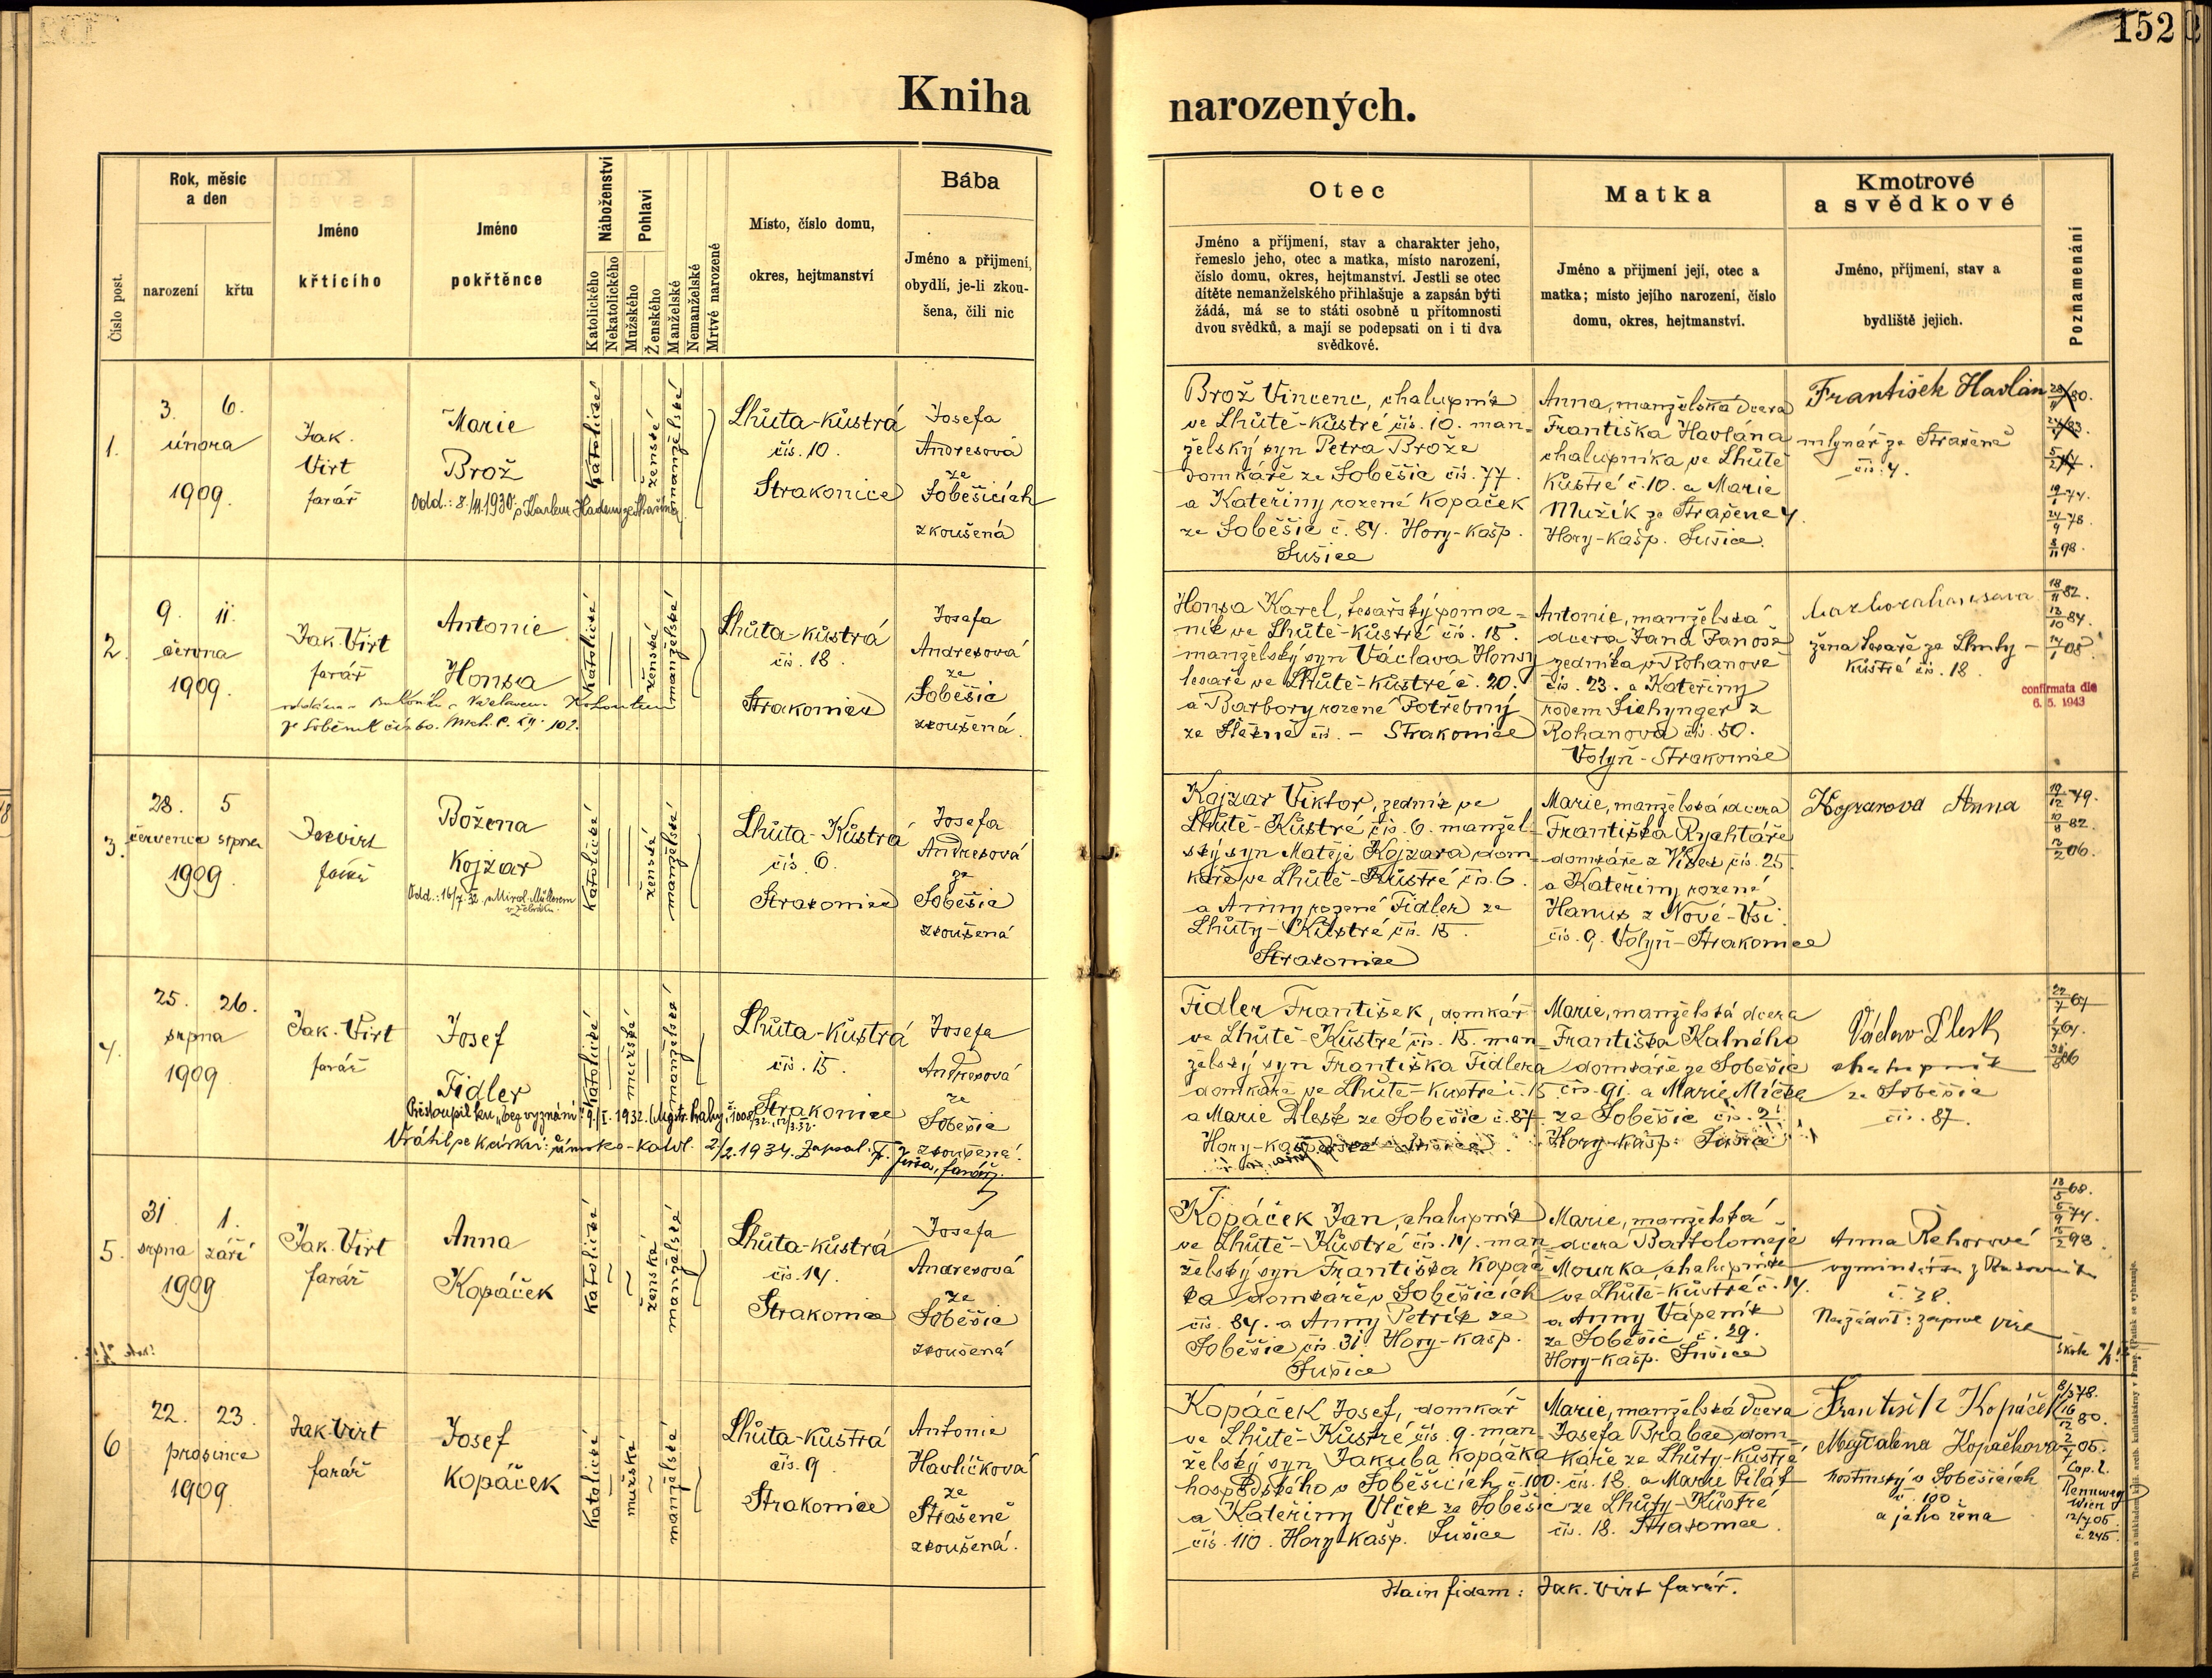 152
Kniha narozených.
Číslo post.
Rok, měsíc a den
narození
křtu
Jméno křtícího
Jméno pokřtěnce
Náboženství
Katolického
Nekatolického
Pohlaví
Mužského
Ženského
Manželské
Nemanželské
Mrtvé narozené
Místo, číslo domu,
okres, hejtmanství
Bába
Jméno a příjmení,
obydlí, je-li zkou-
šena, čili nic
Otec
Jméno a příjmení, stav a charakter jeho,
řemeslo jeho, otec a matka, místo narození,
číslo domu, okres, hejtmanství. Jestli se otec
dítěte nemanželského přihlašuje a zapsán býti
žádá, má se to státi osobně u přítomnosti
dvou svědků, a mají se podepsati on i ti dva
svědkové.
Matka
Jméno a příjmení její, otec a
matka; místo jejího narození, číslo
domu, okres, hejtmanství.
Kmotrové
a svědkové
Jméno, příjmení, stav a
bydliště jejich.
Poznamenání
1.
3. 6.
února
1909.
Jak.
Virt
farář
Marie
Brož
Odd.: 8./11.1930
katolické
ženské
manželské
Lhůta-kůstrá
čís. 10.
Strakonice
Josefa
Andresová
ze
Soběšicích
zkoušená
Brož Vincenc, chalupník
ve Lhůtě-Kůstré čís. 10. man-
želský syn Petra Brože
domkáře ze Soběšic čís. 77.
a Kateřiny rozené Kopáček
ze Soběšic č. 84. Hory-Kašp.
Sušice
Anna, manželská dcera
Františka Havlána
chalupníka ve Lhůtě
Kůstré č. 10. a Marie
Mužík ze Strašene 4.
Hory-Kašp. Sušice.
František Havlán
mlynář ze Strašene
čís. 4.
2.
9. 11.
června
1909.
Jak. Virt
farář
Antonie
Honsa
katolické
ženské
manželské
Lhůta-kůstrá
čís. 18.
Strakonice
Josefa
Andresová
ze
Soběšic
zkoušená.
Honsa Karel, tesařský pomoc-
ník ve Lhůtě-Kůstré čís. 18.
manželský syn Václava Honsy
tesaře ve Lhůtě-kůstré č. 20.
a Barbory rozené Potřebiny
čís. - Strakonice
Antonie, manželská
dcera Jana Janoše
zedníka v Rohanově
čís. 23. a Kateřiny
rodem z
Rohanova čís. 50.
Volyň-Strakonice
žena tesaře ze Lhuty-
kůstré čís. 18.
confirmata die
6. 5. 1943
3.
28. 5
července srpna
1909.
Jak virt
farář
Božena
Kojzar
Odd.: 16/7. 32 s Mirosl. Müllerem
katolické
ženské
manželské
Lhůta-Kůstrá
čís. 6.
Strakonice
Josefa
Andresová
ze
Soběšic
zkoušená
Kojzar Viktor, zedník ve
Lhůtě-Kůstré čís. 6. manžel-
ský syn Matěje Kojzara dom-
káře ve Lhůtě-Kůstré čís. 6.
a Anny rozené Fidler ze
Lhůty-Kůstré čís. 15.
Strakonice
Marie, manželská dcera
Františka Rychtáře
domkáře z čís. 25.
a Kateřiny rozené
Hanus z Nové-Vsi
čís. 9. Volyň-Strakonice
Kojzarova Anna
4.
25. 26.
srpna
1909
Jak. Virt
farář
Josef
Fidler
Přistoupil ku „bez vyznání“ 9./I. 1932.
Vrátil se k církvi římsko-katol. 2/2.1934. Zapsal:
katolické
mužské
manželské
Lhůta-kůstrá
čís. 15.
Strakonice
Josefa
Andresová
ze
Soběšic
zkoušená.
Fidler František, domkář
ve Lhůtě-Kůstré čís. 15. man-
želský syn Františka Fidlera
domkáře ve Lhůtě-Kustré č. 15
a Marie Plesk ze Soběšic č. 87
Marie, manželská dcera
Františka Kalného
domkáře ze Soběšic
čís. 91. a Marie Míčke
ze Soběšic čís. 2.
Hory-Kašp. Sušice
Václav Plesk
chalupník
ze Soběšic
čís. 87.
5.
31. 1.
srpna září
1909
Jak. Virt
farář
Anna
Kopáček
katolické
ženské
manželské
Lhůta-kůstrá
čís. 14.
Strakonice
Josefa
Andresová
ze
Soběšic
zkoušená
Kopáček Jan, chalupník
ve Lhůtě-Kůstré čís. 14. man-
želský syn Františka Kopáč-
ka domkáře v Soběšicích
čís. 84. a Anny Petřík ze
Soběšic čís. 31. Hory-Kašp.
Sušice
Marie, manželská
dcera Bartoloměje
Mourka, chalupníka
ve Lhůtě-Kůstré č. 14.
a Anny Vápeník
ze Soběšic č. 29.
Hory-Kašp. Sušice
Anna Řehorové
č. 38.
6
22. 23.
prosince
1909.
Jak. Virt
farář
Josef
Kopáček
katolické
mužské
manželské
Lhůta-kůstrá
čís. 9
Strakonice
Antonie
Havlíčková
ze
Strašené
zkoušená.
Kopáček Josef, domkář
ve Lhůtě-Kůstré, čís. 9. man-
želský syn Jakuba Kopáčka
hospodského v Soběšicích č. 100.
a Kateřiny Vlček ze Soběšic
čís. 110. Hory-Kašp. Sušice
Marie, manželská dcera
Josefa Brabce, dom-
káře ze Lhůty-Kůstré
čís. 18. a Marie Pilát
ze Lhůty-Kůstré
čís. 18. Strakonice.
František Kopáček
Magdalena Kopačkova
hostinský v Soběšicích
č. 100
a jeho žena
Cop. l.
Rennweg
Wien
12/4 05.
č. 245.
Ita in fidem: Jak. Virt farář.